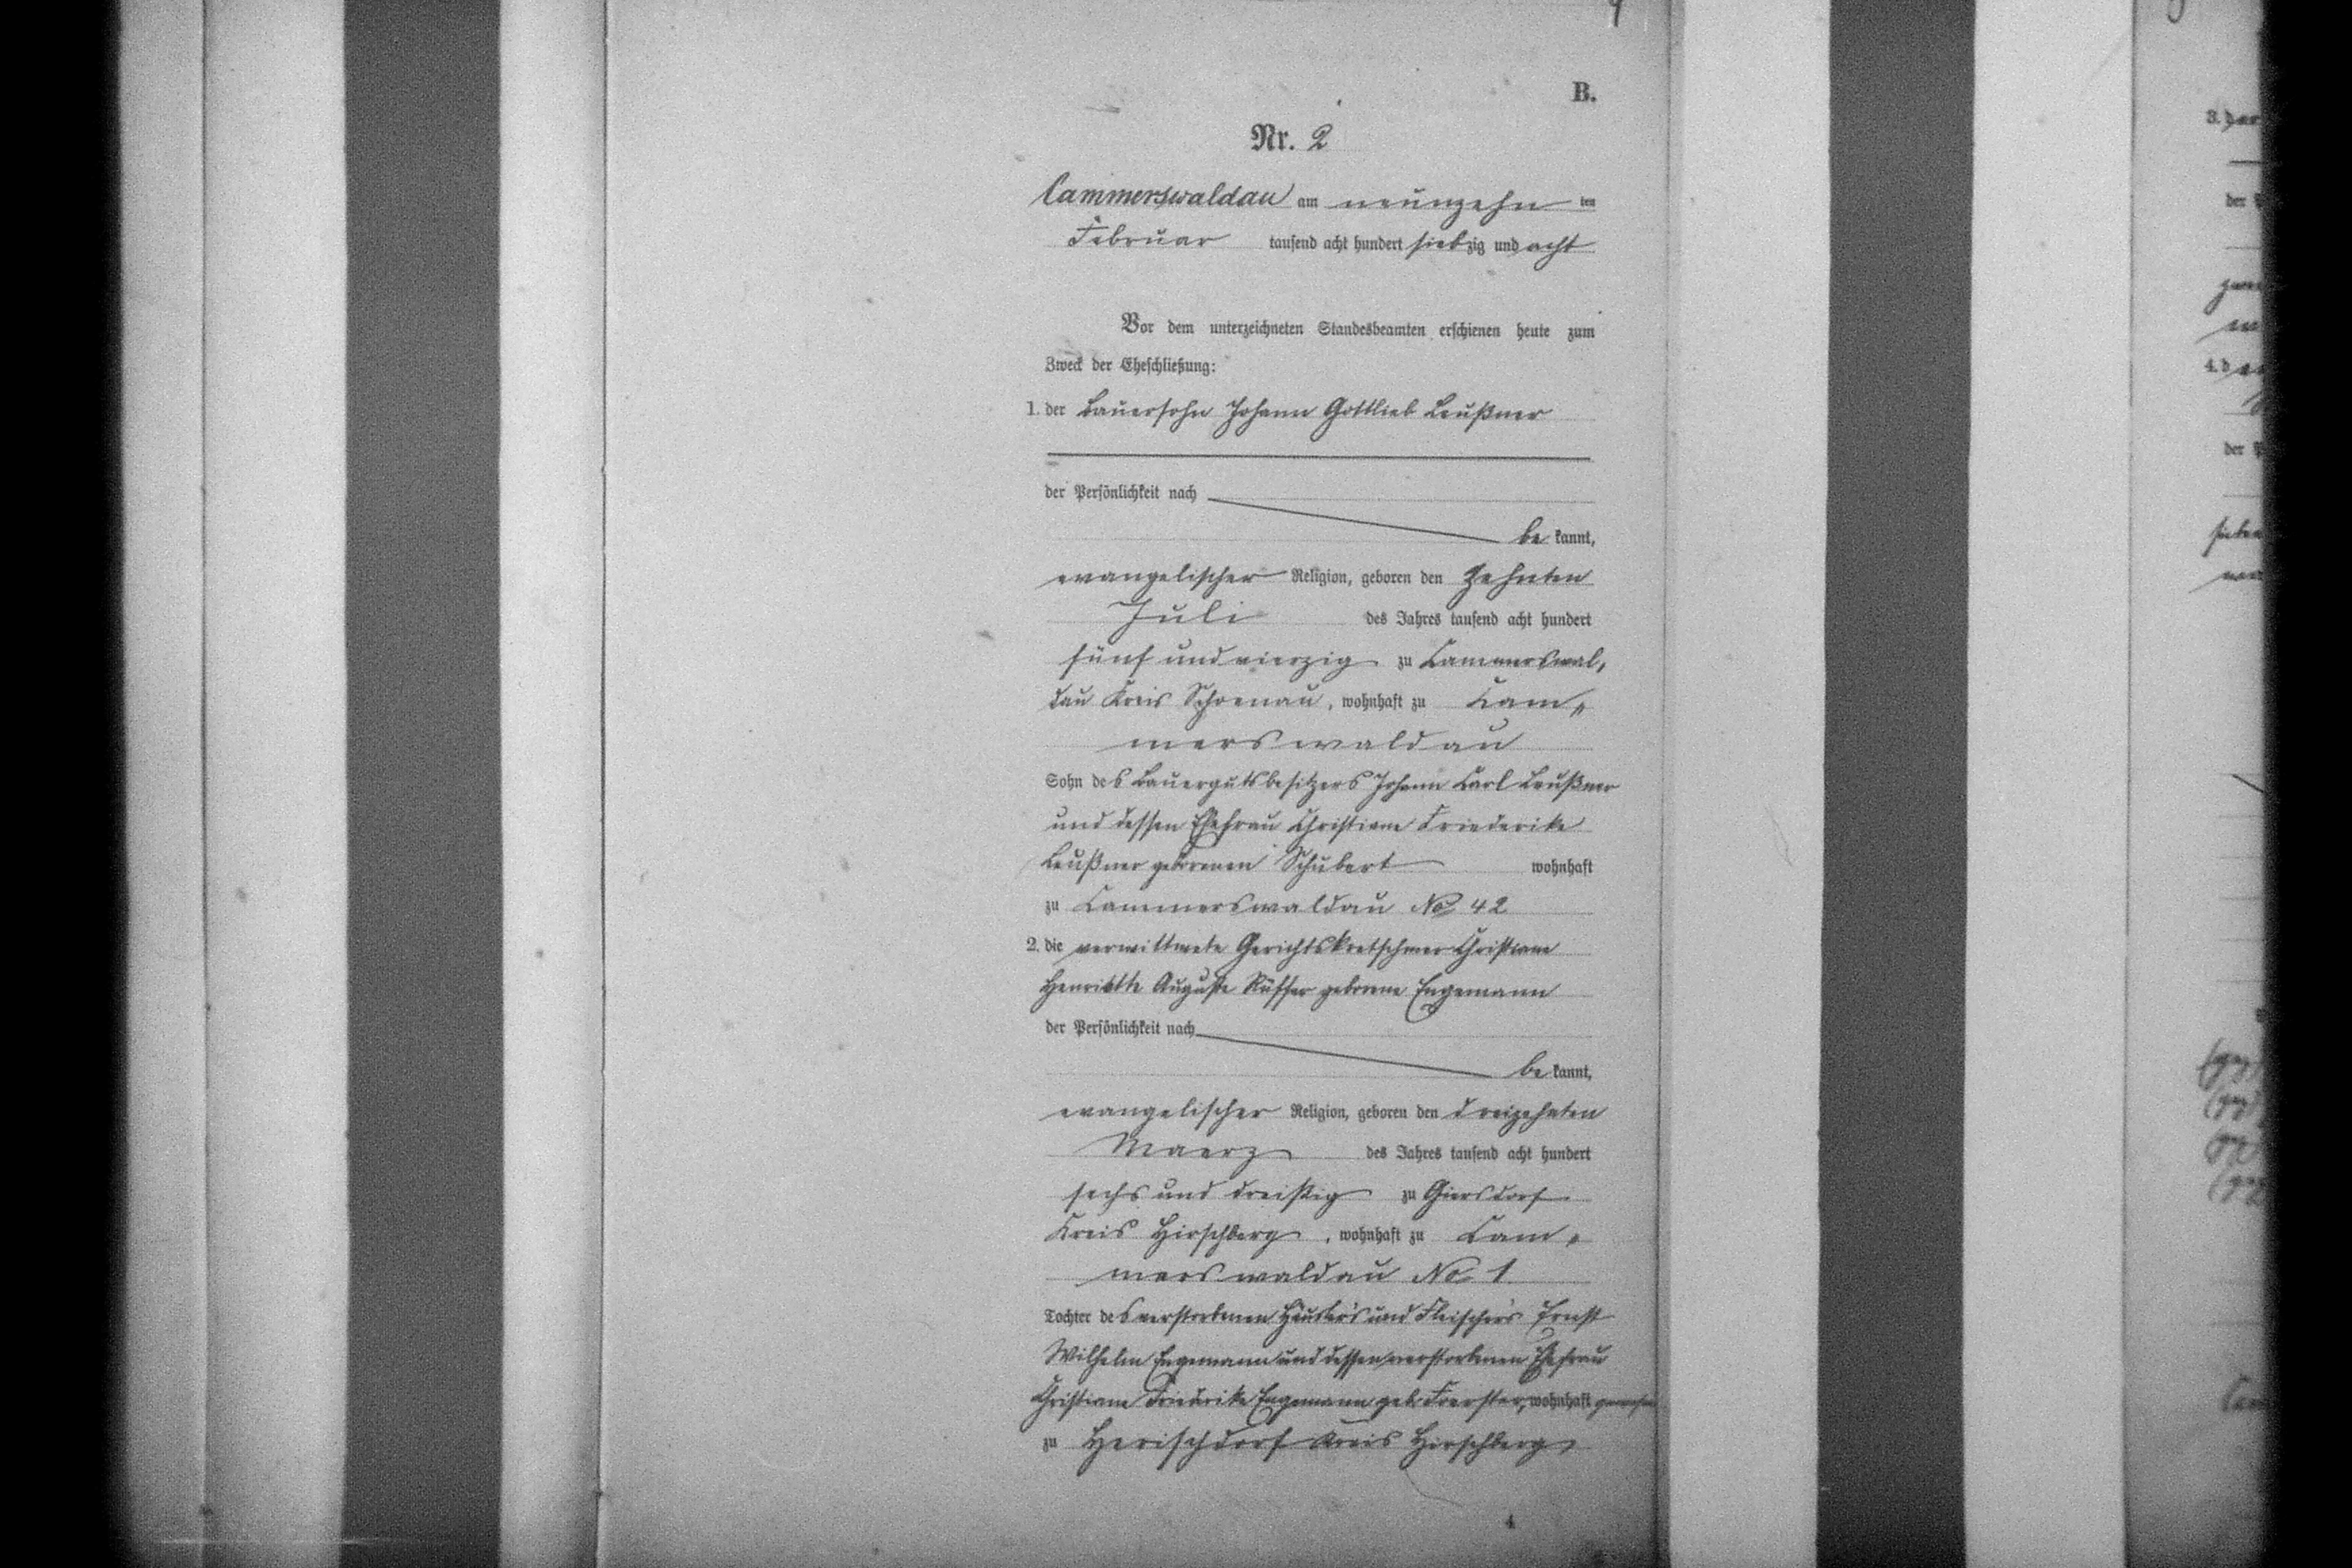 B.
Nr. 2
Cammerswaldau am neunzehn ten
Februar tausend acht hundert siebzig und acht
Vor dem unterzeichneten Standesbeamten erschienen heute zum
Zweck der Eheschließung:
1. der Bauersohn Johann Gottlieb Leußner
der Persönlichkeit nach
be kannt,
evangelischer Religion, geboren den zehnten
Juli des Jahres tausend acht hundert
fünf und vierzig zu Cammerswal,
dau Kreis Schoenau, wohnhaft zu Cam„
merswaldau
Sohn des Bauergutsbesitzers Johann Carl Leußner
und dessen Ehefrau Christiane Friederike
Leußner geborenen Schubert wohnhaft
zu Cammerswaldau No 42
2. die verwittwete Gerichtskretschmer Christiane
Henriette Auguste Rüffer geborene Engemann
der Persönlichkeit nach
be kannt,
evangelischer Religion, geboren den dreizehnten
Maerz des Jahres tausend acht hundert
sechs und dreißig zu Giersdorf
Kreis Hirschberg, wohnhaft zu Cam„
merswaldau No 1
Tochter des verstorbenen Häusler's und Fleischer's Ernst
Wilhelm Engemann und dessen verstorbenen Ehefrau
Christiane Friedrike Engemann geb. Foerster, wohnhaft gewesen
zu Herischdorf Kreis Hirschberg
4
3. der
der P
4. d
der P